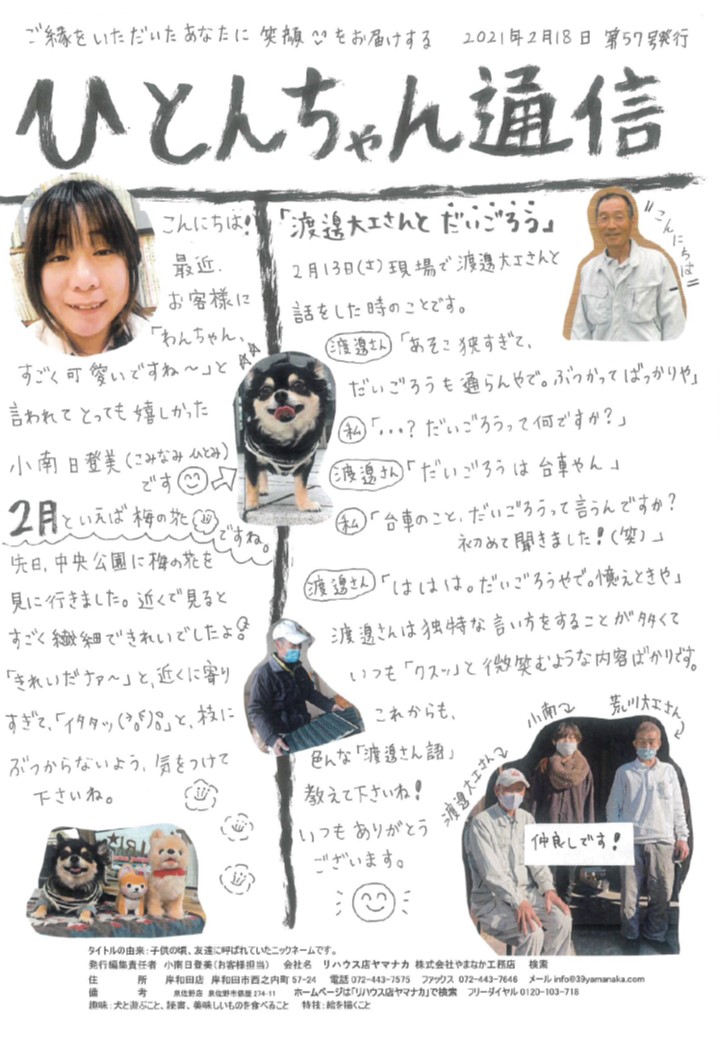 ご縁をいただいたあなたに 笑顔をお届けする 2021年2月18日 第57号発行
ひとんちゃん通信
こんにちは!
最近、
お客様に
「わんちゃん、
すごく可愛いですね〜」と
言われてとっても嬉しかった
小南日登美(こみなみひとみ)
です
2月といえば梅の花ですね。
先日、中央公園に梅の花を
見に行きました。近くで見ると
すごく繊細できれいでしたよ!
「きれいだナァ〜」と、近くに寄り
すぎて、「イタタッ」と、枝に
ぶつからないよう、気をつけて
下さいね。
「渡邉大工さんと だいごろう」
"こんにちは"
2月13日(土)現場で渡邉大工さんと
話をした時のことです。
渡邉さん「あそこ狭すぎて、
だいごろうも通らんやで。ぶつかってばっかりや」
私「・・・?だいごろうって何ですか?」
渡邉さん「だいごろうは台車やん」
私「台車のこと、だいごろうって言うんですか?
初めて聞きました!(笑)」
渡邉さん「ははは。だいごろうやで。憶えときや」
渡邉さんは独特な言い方をすることが多くて
いつも「クスッ」と微笑むような内容ばかりです。
これからも、
色んな「渡邉さん語」
教えて下さいね!
いつもありがとう
ございます。
小南
荒川大工さん
渡邉大工さん
仲良しです!
タイトルの由来:子供の頃、友達に呼ばれていたニックネームです。
発行編集責任者 小南日登美(お客様担当) 会社名 リハウス店ヤマナカ 株式会社やまなか工務店 検索
住 所 岸和田店 岸和田市西之内町57-24 電話 072-443-7575 ファックス 072-443-7646 メール info@39yamanaka.com
備 考 泉佐野店 泉佐野市俵屋274-11 ホームページは「リハウス店ヤマナカ」で検索 フリーダイヤル 0120-103-718
趣味:犬と遊ぶこと、読書、美味しいものを食べること 特技:絵を描くこと